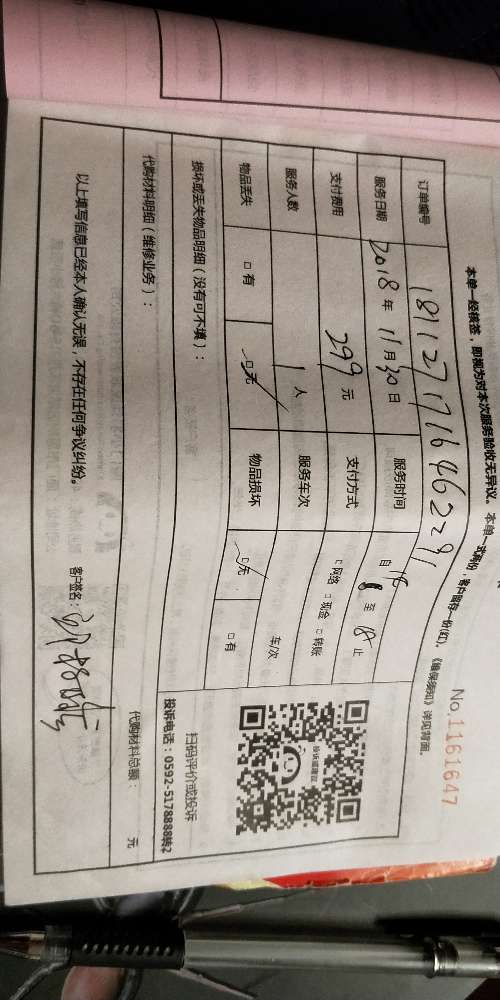 本单一经核签，即视为对本次服务验收无异议。本单一式两份，客户留存一份(红)。《维保须知》详见背面。
No.1161647
订单编号 1811271716462291
服务日期 2018年11月30日 服务时间 自16至18止
支付费用 299元 支付方式 □网络 □现金 □转账
服务人数 1人 服务车次 车/次
物品丢失 □有 □无 物品损坏 □无 □有
损坏或丢失物品明细（没有可不填）：
扫码评价或投诉
投诉电话：0592-5178888转2
代购材料明细（维修业务）：
代购材料总额： 元
以上填写信息已经本人确认无误，不存在任何争议纠纷。 客户签名：
投诉或建议